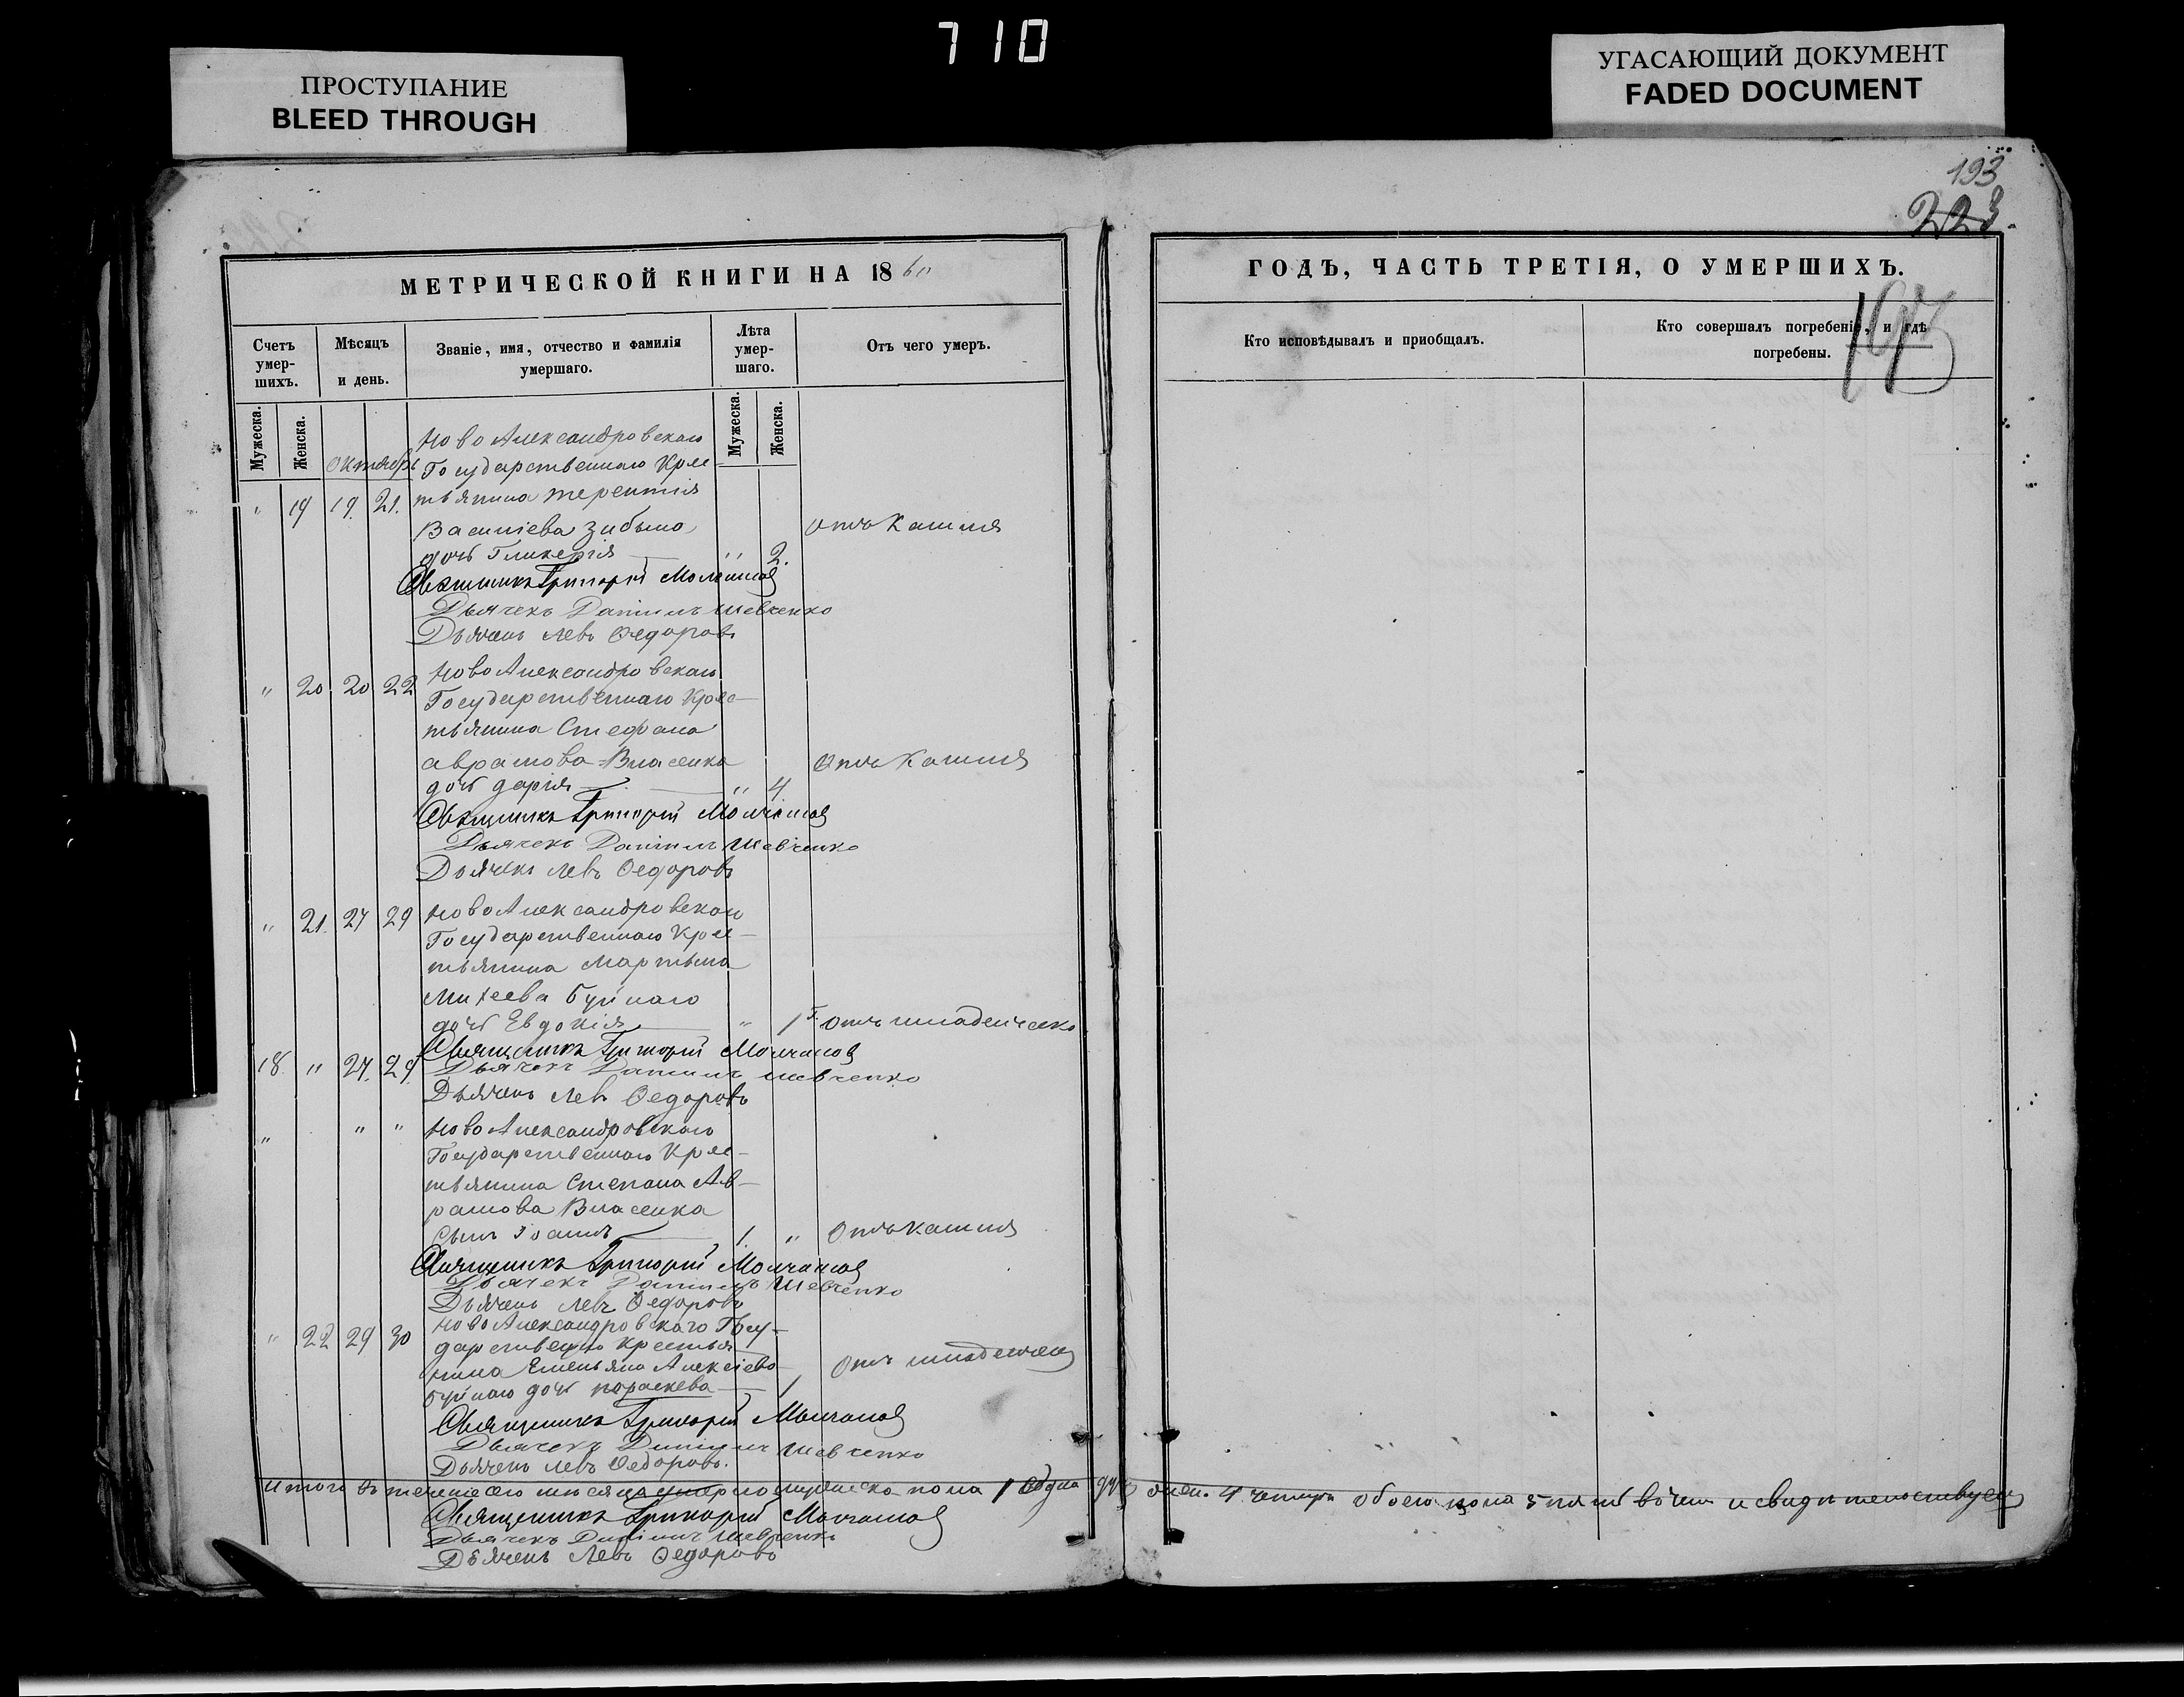 710
ПРОСТУПАНИЕ
BLEED THROUGH
УГАСАЮЩИЙ ДОКУМЕНТ
FADED DOCUMENT
193
223
МЕТРИЧЕСКОЙ КНИГИ НА 1860
Счетъ умер-шихъ.
Мѣсяцъ и день.
Званіе, имя, отчество и фамилія умершаго.
Лѣта умер-шаго.
Отъ чего умеръ.
Мужеска.
Женска.
Мужеска.
Женска.
октябрь
Ново Александровскаго
Государственнаго Крес-
" 19 19. 21. тьянина терентія
Василіева
отъ Кашля
дочь Гликерія " 2.
Священникъ Григорій Молчанов
Дьячекъ Даніилъ Шевченко
Дьячекъ Левъ Федоровъ
" 20 20 22 Ново Александровскаго
Государственнаго Крес-
тьянина Стефана
аврамова Власенка
отъ Кашля
дочь дарія " 4
Священникъ Григорій Молчанов
Дьячекъ Даніилъ Шевченко
Дьячекъ Левъ Федоровъ
" 21. 27 29 Ново Александровскаго
Государственнаго Крес-
тьянина Мартына
Михеева Буйнаго
дочь Евдокія " 1 г. отъ младенческо
Священникъ Григорій Молчанов
18. " 27. 29. Дьячекъ Даніилъ Шевченко
Дьячекъ Левъ Федоровъ
" " " Ново Александровскаго
Государственнаго Крес-
тьянина Степана Ав-
рамова Власенка
Сынъ Іоаннъ 1. " отъ кашля
Священникъ Григорій Молчанов
Дьячекъ Даніилъ Шевченко
Дьячекъ Левъ Федоровъ
" 22 29 30 Ново Александровскаго Госу-
дарственнаго Крестья-
нина Емельяна Алексіева
отъ младенчес
Буйнаго дочь параскева 1
Священникъ Григорій Молчанов
Дьячекъ Даніилъ Шевченко
Дьячекъ Левъ Федоровъ.
Итого въ теченіе сего мѣсяца умерло мужеско пола 1 одна
Священникъ Григорій Молчанов
Дьячекъ Даніилъ Шевченко
Дьячекъ Левъ Федоровъ
ГОДЪ, ЧАСТЬ ТРЕТІЯ, О УМЕРШИХЪ.
Кто исповѣдывалъ и пріобщалъ.
Кто совершалъ погребеніе, и гдѣ погребены.
4 четыри обоего пола 5 пять вчем и свидетельствуем